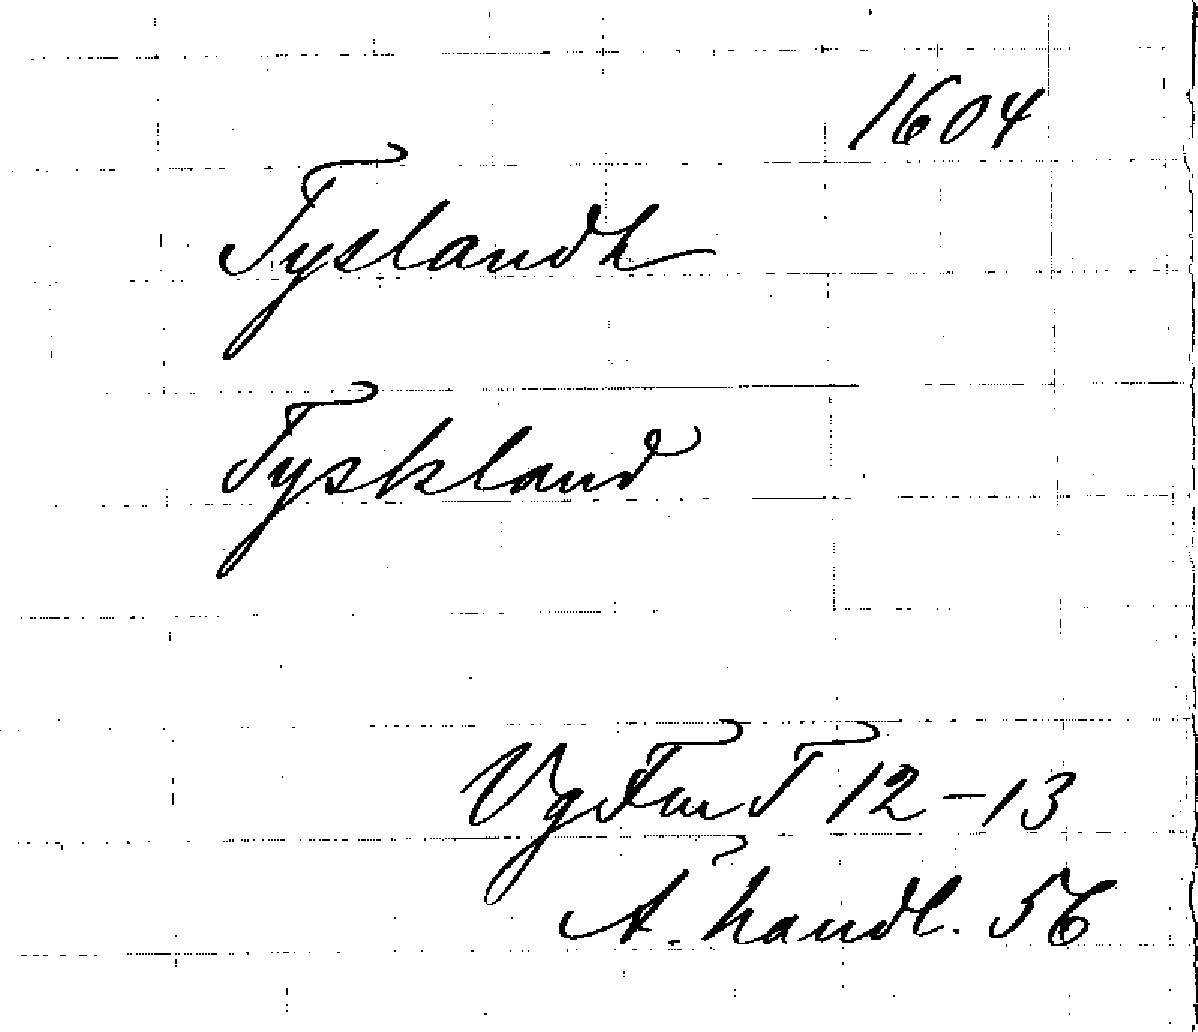 1604
Tyslandh
Tyskland
VgFmT 12-13
A. handl. 56